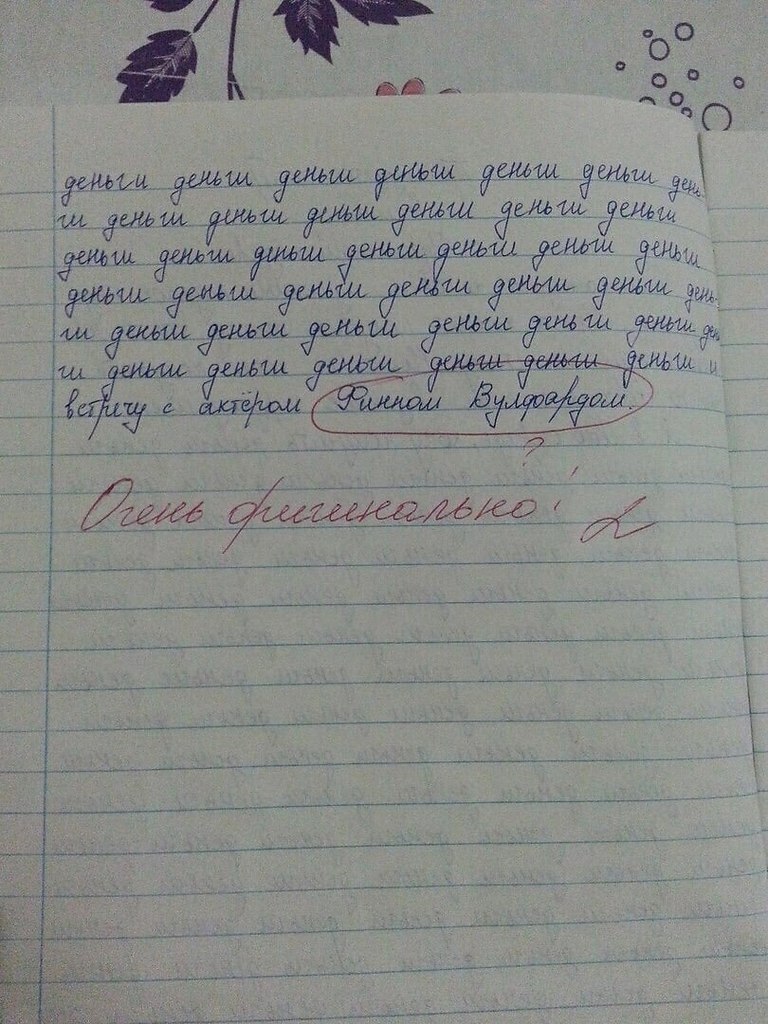 деньги деньги деньги деньги деньги деньги день-
ги деньги деньги деньги деньги деньги деньги
деньги деньги деньги деньги деньги деньги деньги
деньги деньги деньги деньги деньги деньги день-
ги деньги деньги деньги деньги деньги деньги день
ги деньги деньги деньги деньги деньги деньги и
встречу с актёром Финном Вулфардом.
?
Очень оригинально! 2